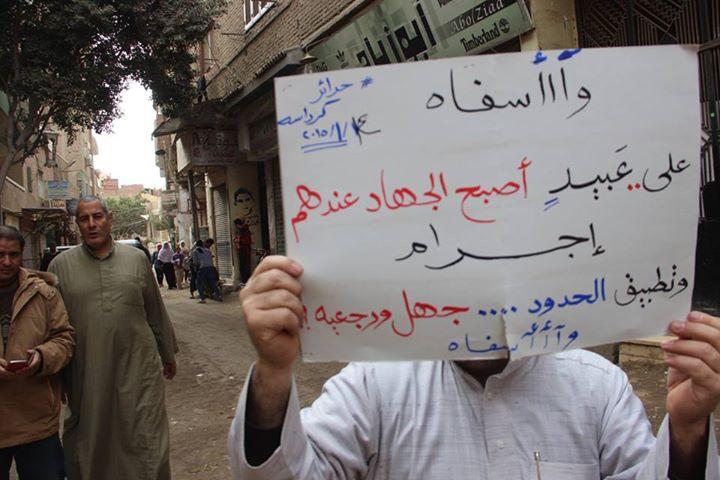 أبو زياد
Abo Ziad
Timberland
* حرائر
كرداسه
٢٠١٥/١/١٤
وآأأسفاه
على .. عَبيدٍ أصبح الجهاد عندهم
إجرام
وتطبيق الحدود .... جهل ورجعيه !!
وآأأأسفاه